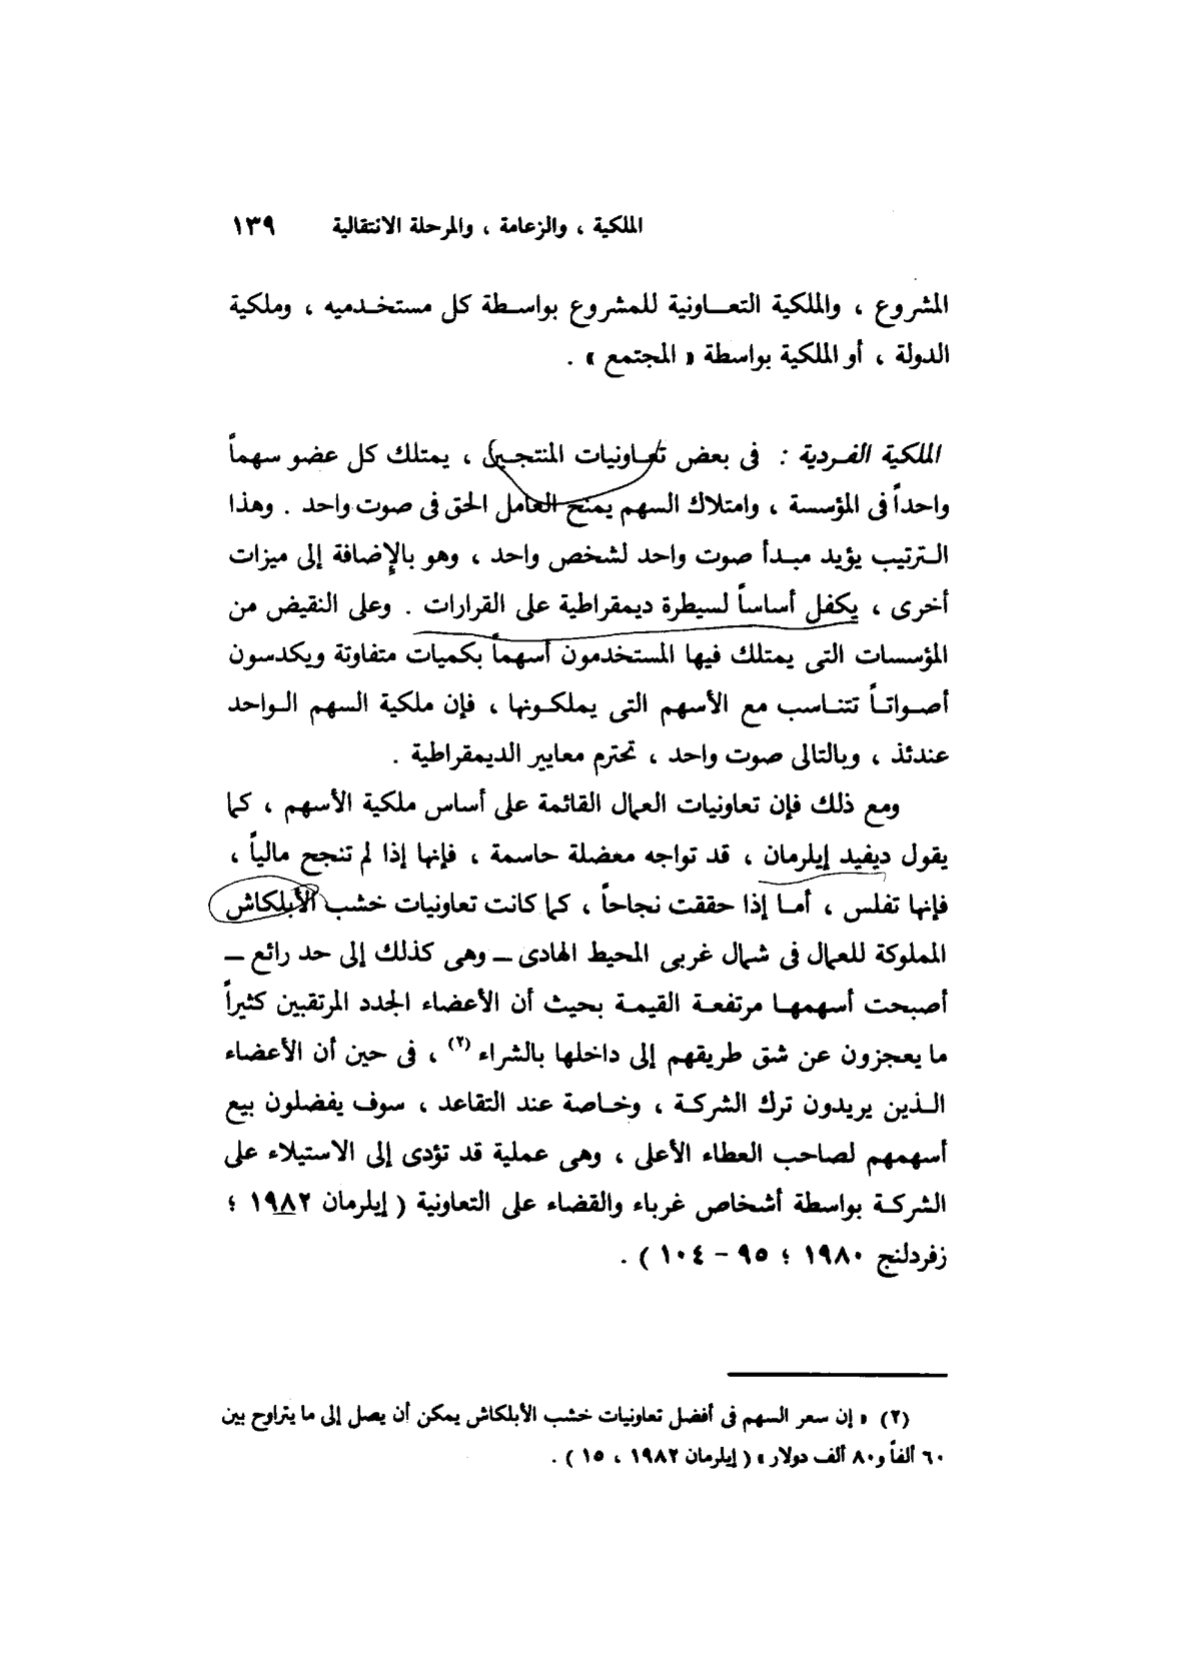 الملكية ، والزعامة ، والمرحلة الانتقالية ١٣٩
المشروع ، والملكية التعـاونية للمشروع بواسطة كل مستخـدميه ، وملكية
الدولة ، أو الملكية بواسطة « المجتمع » .
الملكية الفـردية : فى بعض تعـاونيات المنتجـين ، يمتلك كل عضو سهماً
واحداً فى المؤسسة ، وامتلاك السهم يمنح العامل الحق فى صوت واحد . وهذا
الـترتيب يؤيد مبـدأ صوت واحد لشخص واحد ، وهو بالإضافة إلى ميزات
أخرى ، يكفل أساساً لسيطرة ديمقراطية على القرارات . وعلى النقيض من
المؤسسات التى يمتلك فيها المستخدمون أسهماً بكميات متفاوتة ويكدسون
أصـواتـاً تتنـاسب مع الأسهم التى يملكـونها ، فإن ملكية السهم الـواحد
عندئذ ، وبالتالى صوت واحد ، تحترم معايير الديمقراطية .
ومع ذلك فإن تعاونيات العمال القائمة على أساس ملكية الأسهم ، كما
يقول ديفيد إيلرمان ، قد تواجه معضلة حاسمة ، فإنها إذا لم تنجح مالياً ،
فإنها تفلس ، أمـا إذا حققت نجاحاً ، كما كانت تعاونيات خشب الأبلكاش
المملوكة للعمال فى شمال غربى المحيط الهادى ــ وهى كذلك إلى حد رائع ــ
أصبحت أسهمهـا مرتفعـة القيمـة بحيث أن الأعضاء الجدد المرتقبين كثيراً
ما يعجزون عن شق طريقهم إلى داخلها بالشراء (٢) ، فى حين أن الأعضاء
الـذين يريدون ترك الشركـة ، وخـاصة عند التقاعد ، سوف يفضلون بيع
أسهمهم لصاحب العطاء الأعلى ، وهى عملية قد تؤدى إلى الاستيلاء على
الشركـة بواسطة أشخاص غرباء والقضاء على التعاونية ( إيلرمان ١٩٨٢ ؛
زفردلنج ١٩٨٠ ؛ ٩٥ - ١٠٤ ) .
(٢) « إن سعر السهم فى أفضل تعاونيات خشب الأبلكاش يمكن أن يصل إلى ما يتراوح بين
٦٠ ألفاً و٨٠ ألف دولار » ( إيلرمان ١٩٨٢ ، ١٥ ) .